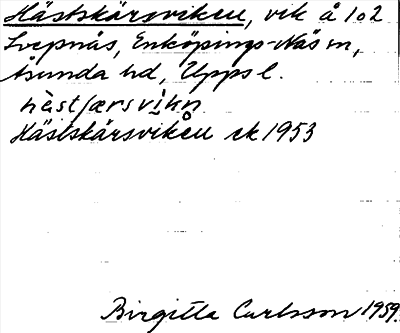 Hästskärsviken, vik å 1o2
Svepnås, Enköpings-Näs sn,
Åsunda hd, Uppsl.
hästʃærsvikn
Hästskärsviken ek 1953
Birgitta Carlsson 1959.